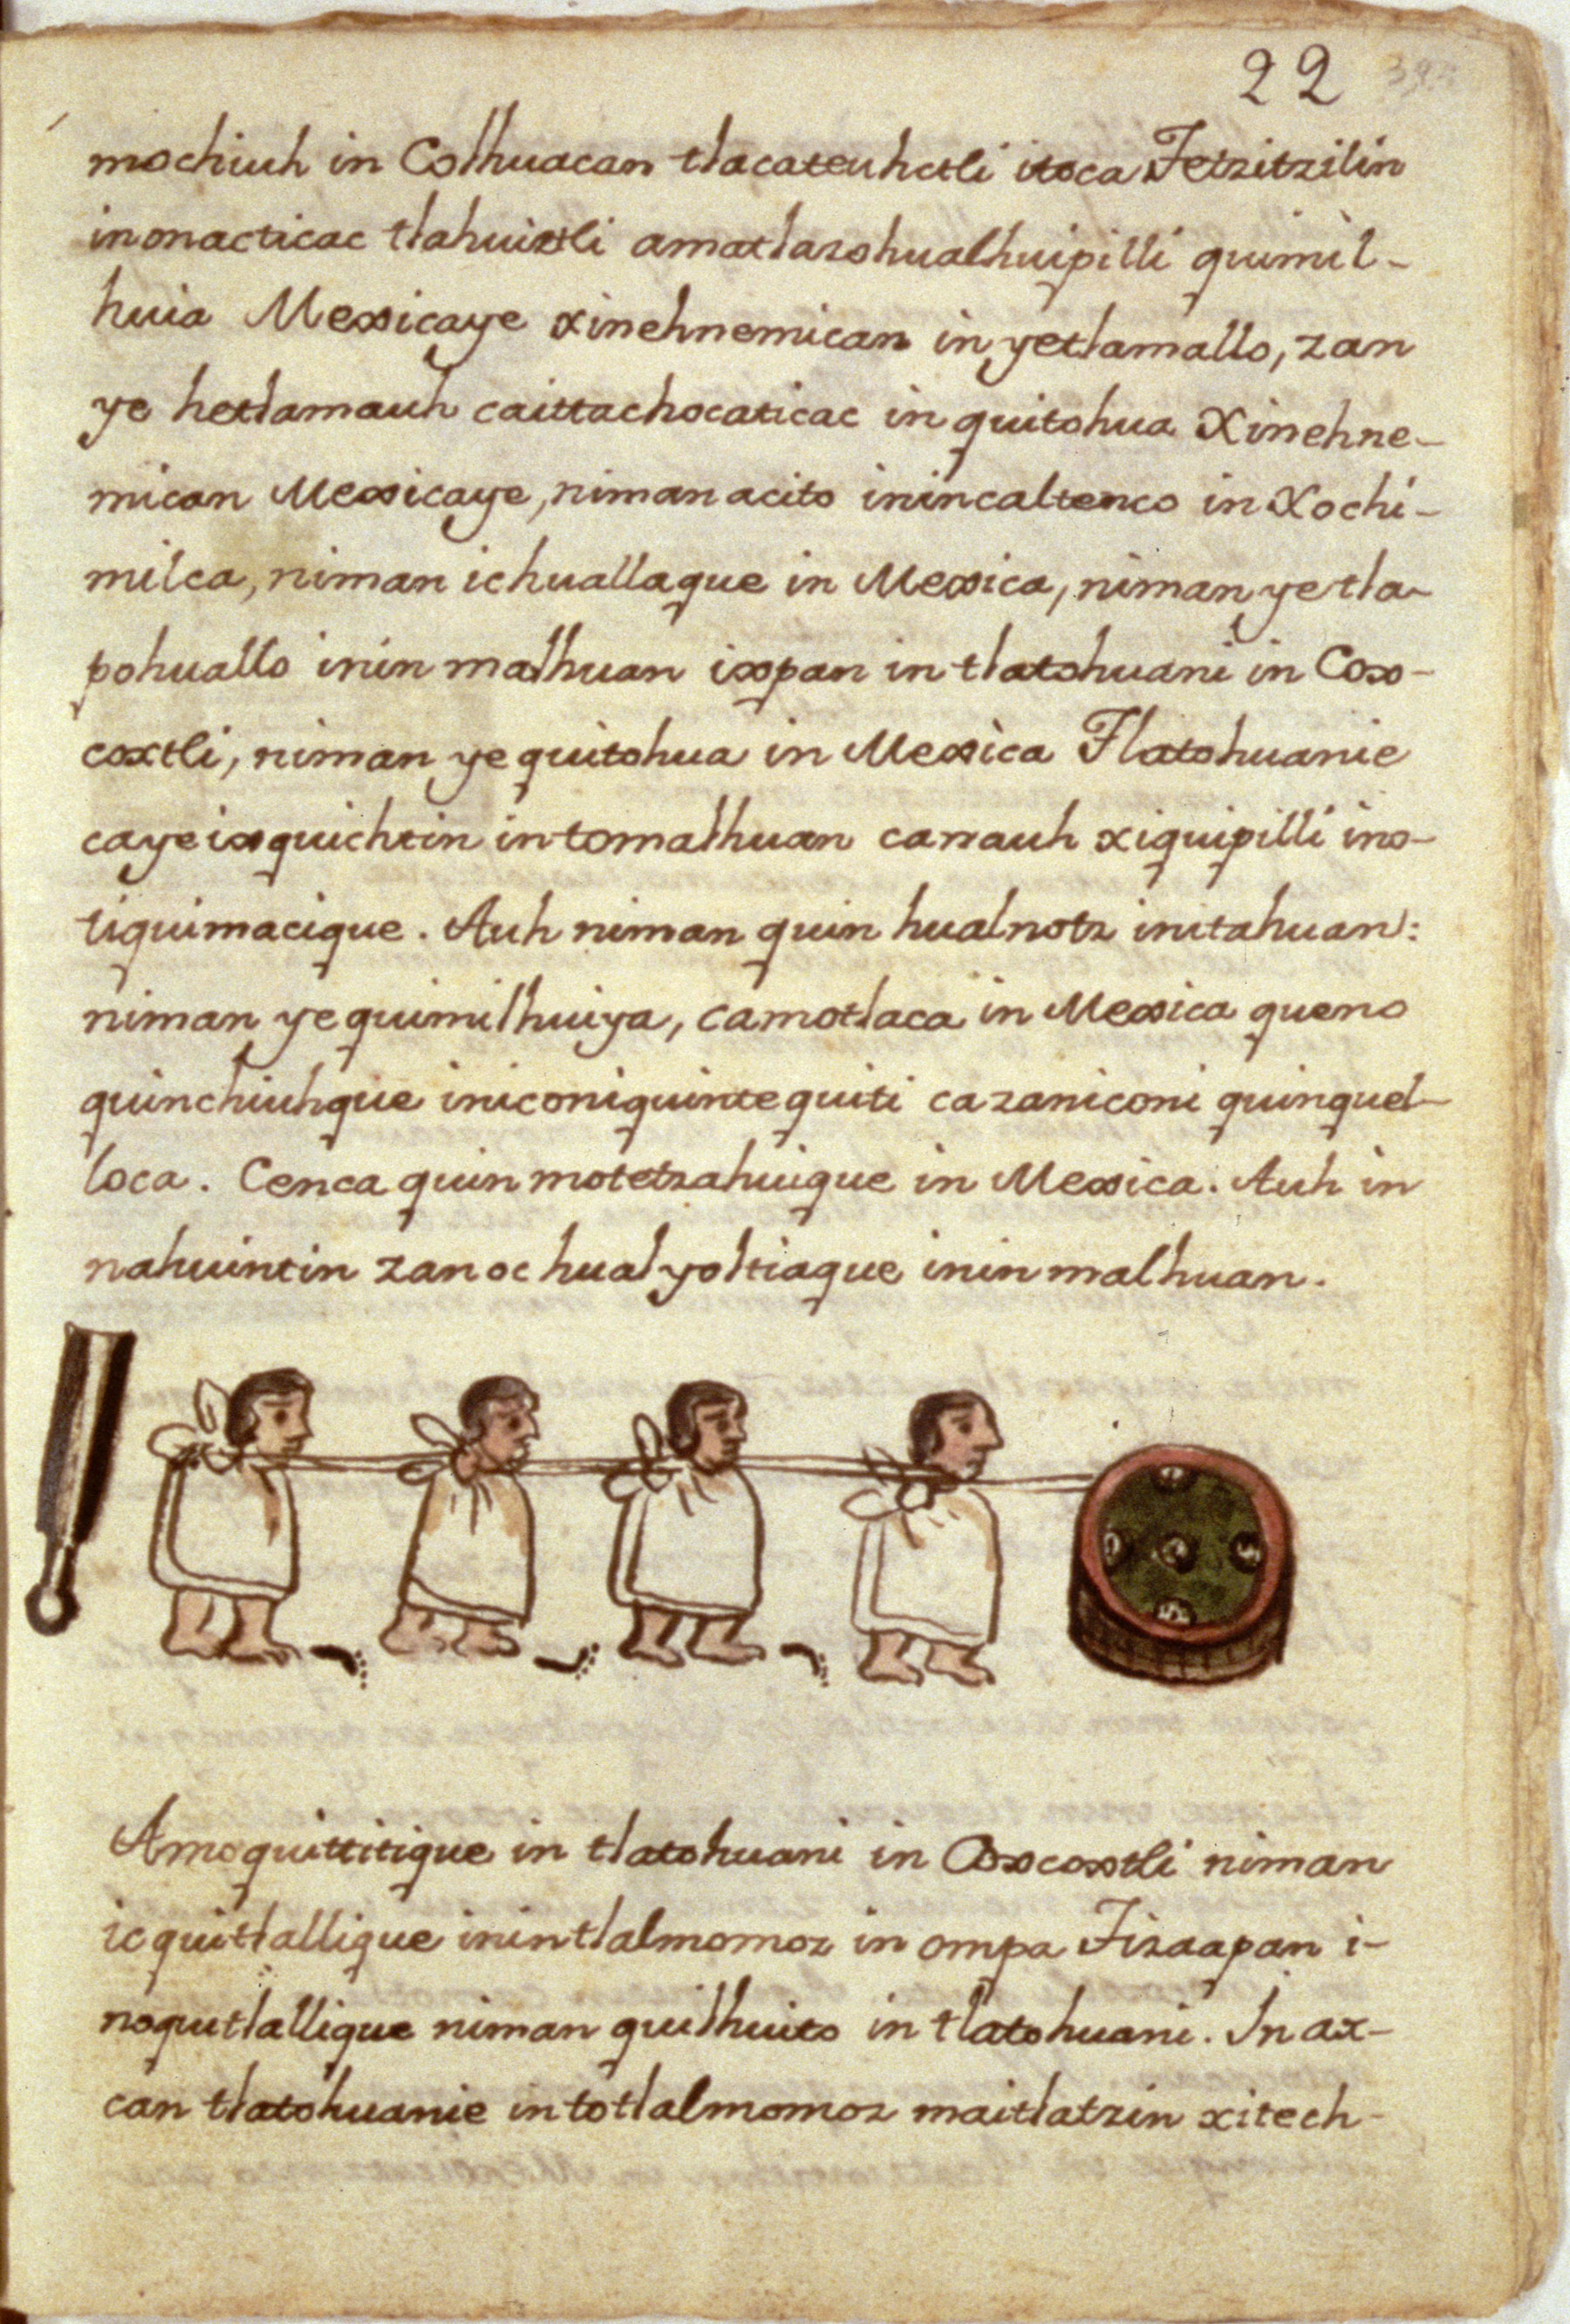 22
mochiuh in Colhuacan tlacateuhctli itoca Tetzitzilin
inonacticac tlahuiztli amatlazohualhuipilli quimil-
huia Mexicaye xinehnemican in yetlamallo, zan
ye hetlamauh caittachocaticac in quitohua Xinehne-
mican Mexicaye, niman acito inincaltenco in Xochi-
milca, niman ichuallaque in Mexica, niman yetla-
pohuallo inin malhuan ixpan in tlatohuani in Cox-
coxtli, niman ye quitohua in Mexica Tlatohuanie
caye ixquichtin intomalhuan canauh xiquipilli ino-
tiquimacique. Auh niman quin hualnotz initahuan:
niman ye quimilhuiya, camotlaca in Mexica queno
quinchiuhque iniconiquintequiti cazaniconi quinquel-
loca. Cenca quin motetzahuique in Mexica. Auh in
nahuintin zanoc hualyoltiaque inin malhuan.
Amoquittitique in tlatohuani in Coxcoxtli niman
ic quitlallique inintlalmomoz in ompa Tizaapan i-
noqutlallique niman quilhuito in tlatohuani. In ax-
can tlatohuanie intotlalmomoz maitlatzin xitech-